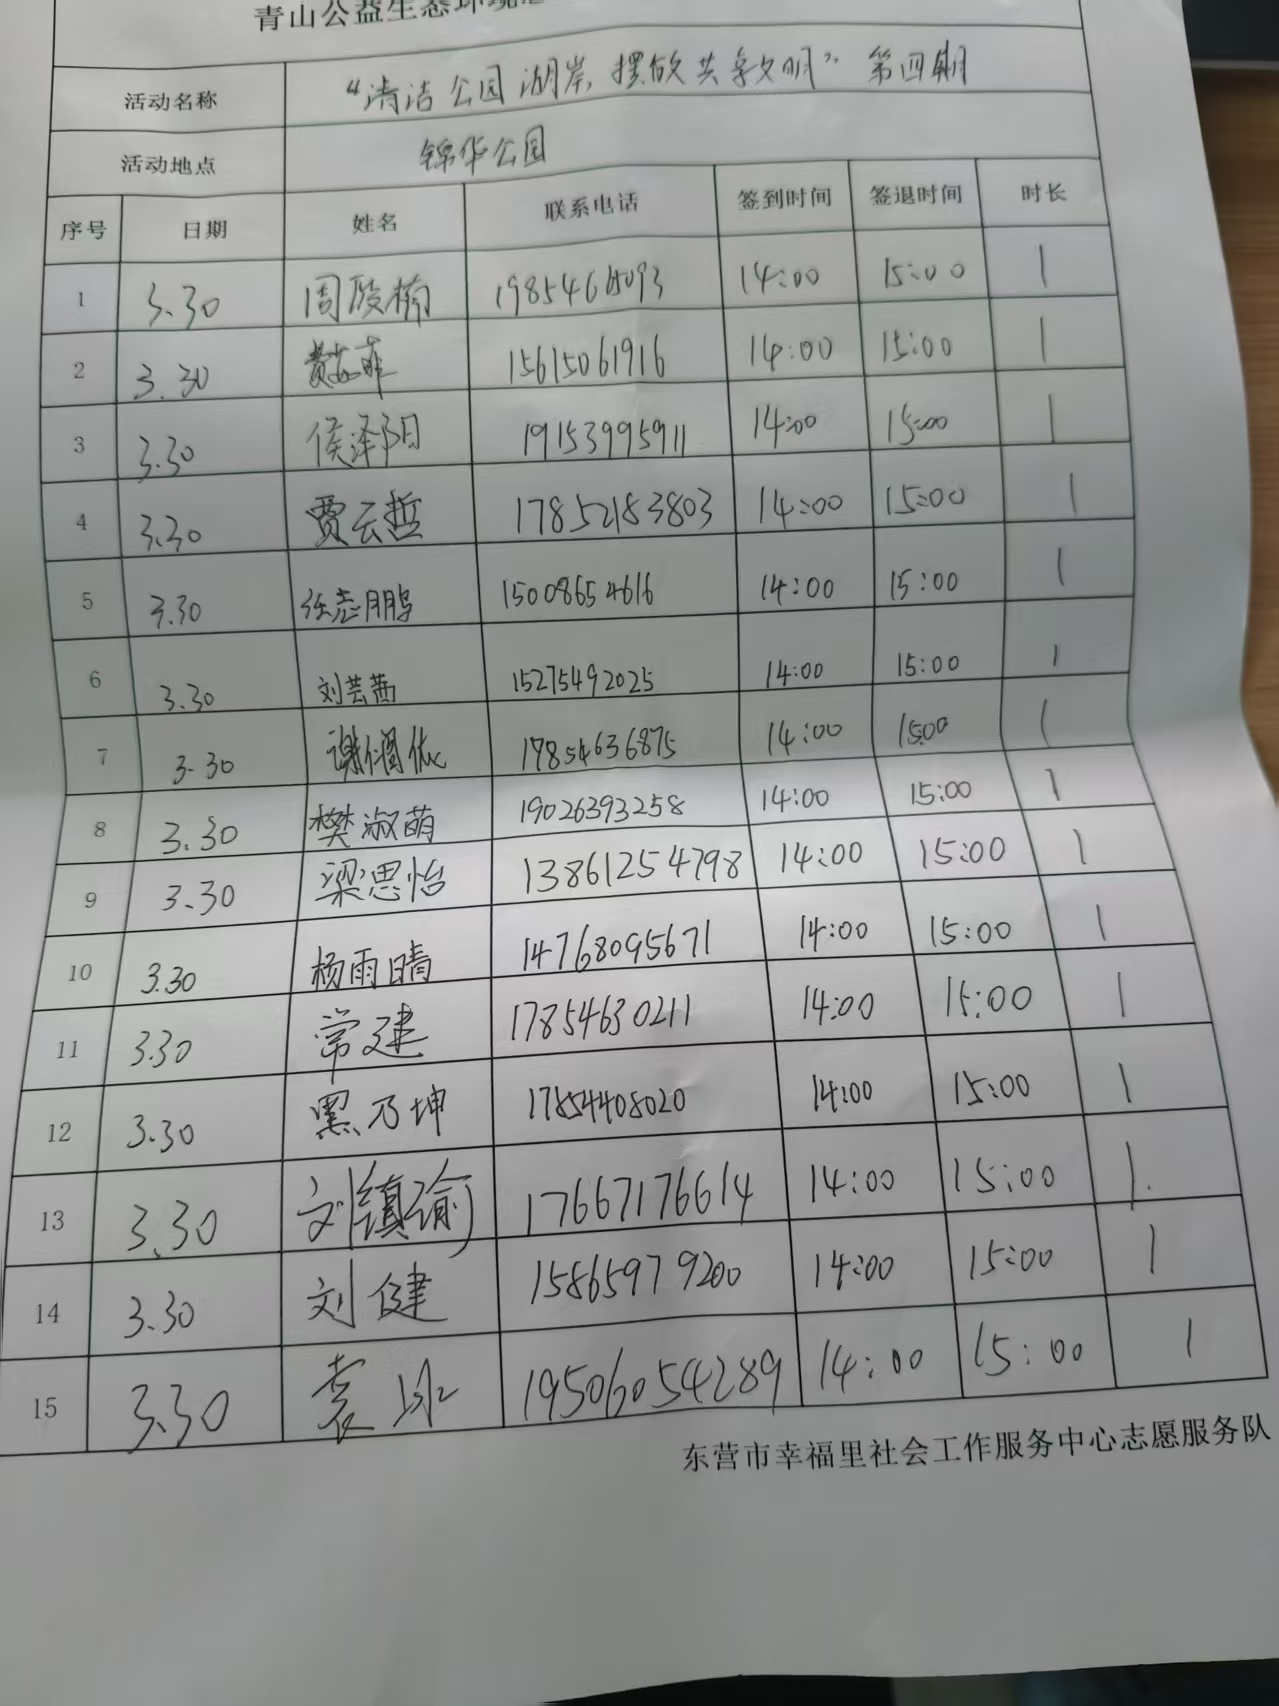 青山公益生态环境
活动名称 “清洁公园湖岸,摆放共享文明” 第四期
活动地点 锦华公园
序号 日期 姓名 联系电话 签到时间 签退时间 时长
1 3.30 周殷楠 14:00 15:00 1
2 3.30 15615061916 14:00 15:00 1
3 3.30 侯泽阳 19153995911 14:00 15:00 1
4 3.30 贾云哲 17852183803 14:00 15:00 1
5 3.30 张志鹏 15008654616 14:00 15:00 1
6 3.30 刘芸茜 15275492025 14:00 15:00 1
7 3.30 17854636875 14:00 15:00 1
8 3.30 樊淑萌 19026393258 14:00 15:00 1
9 3.30 梁思怡 13861254798 14:00 15:00 1
10 3.30 杨雨晴 14768095671 14:00 15:00 1
11 3.30 常建 17854630211 14:00 15:00 1
12 3.30 黑乃坤 17854408020 14:00 15:00 1
13 3.30 刘镇瑜 17667176614 14:00 15:00 1.
14 3.30 刘健 15865979200 14:00 15:00 1
15 3.30 袁冰 19506054289 14:00 15:00 1
东营市幸福里社会工作服务中心志愿服务队